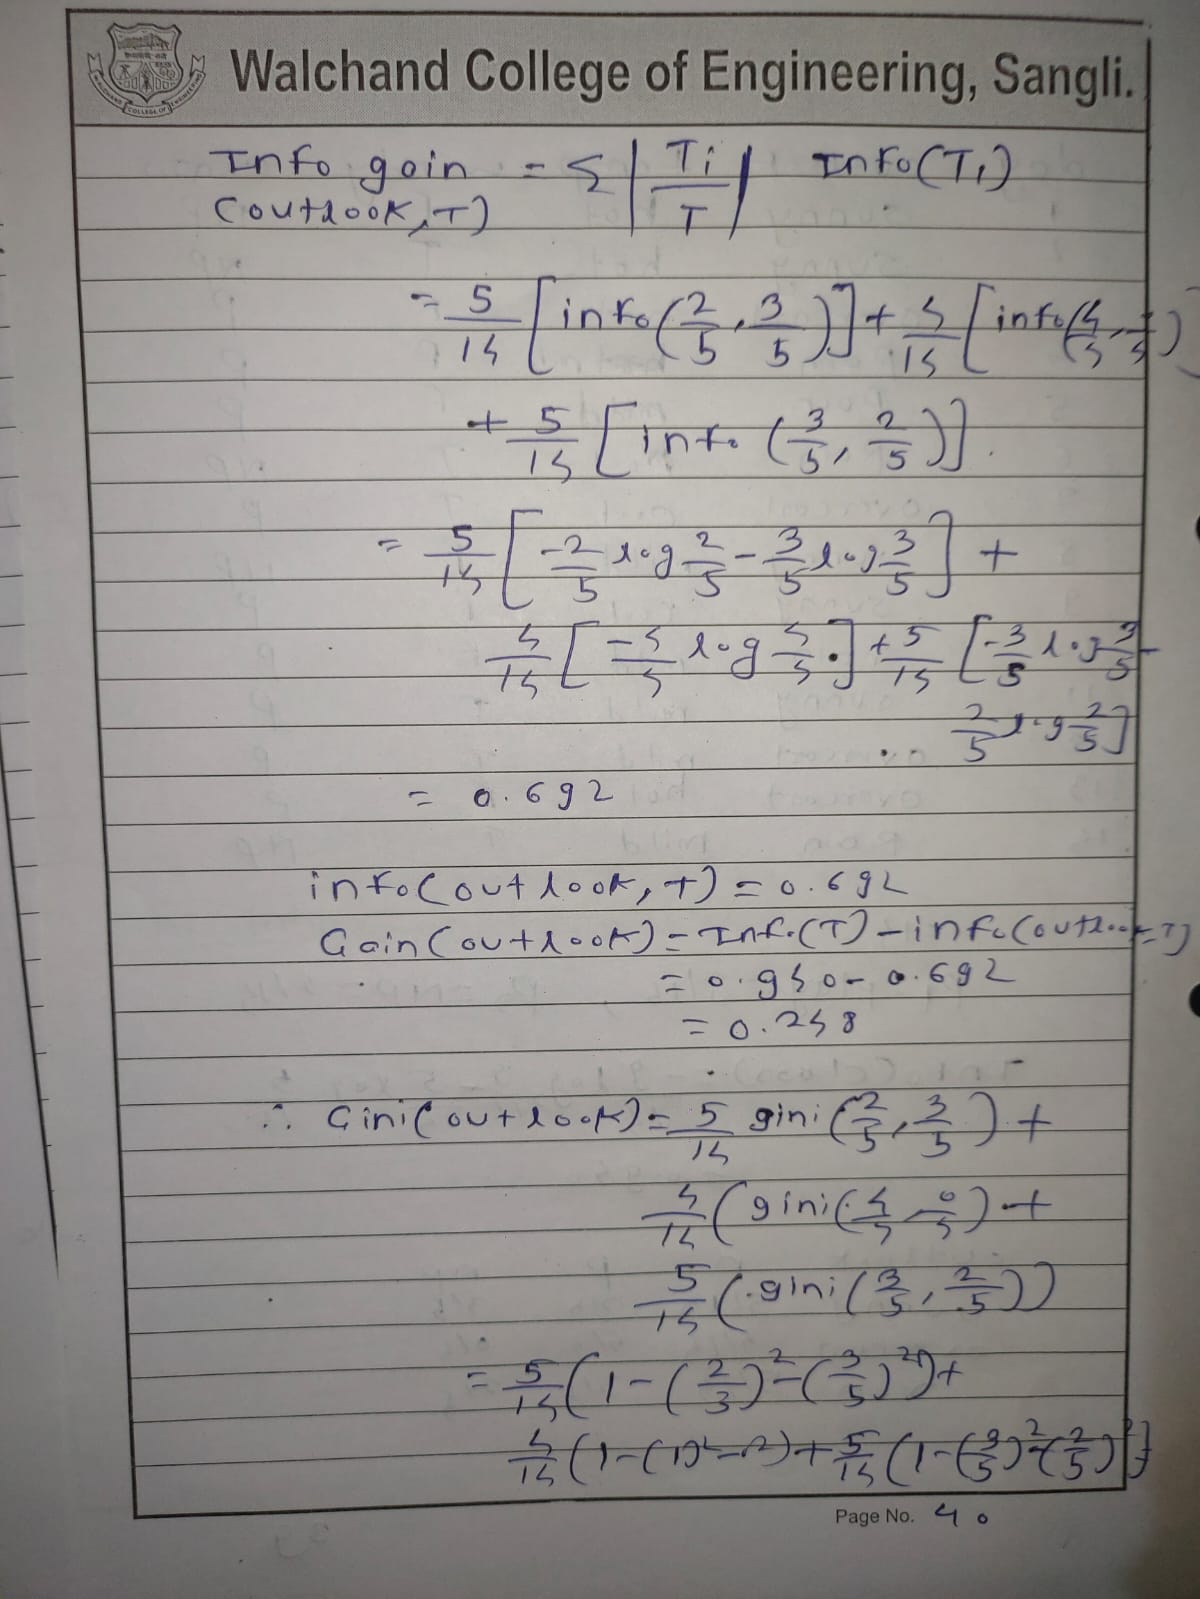 Walchand College of Engineering, Sangli.
Info gain = Σ |Ti/T| Info(Ti)
(outlook, T)
= 5/14 [info(2/5, 3/5)] + 4/14 [info(4/4, 0/4)]
+ 5/14 [info (3/5, 2/5)].
= 5/14 [-2/5 log 2/5 - 3/5 log 3/5] +
4/14 [-4/4 log 4/4] + 5/14 [-3/5 log 3/5 -
2/5 log 2/5]
= 0.692
info(outlook, T) = 0.692
Gain(outlook) = Info(T) - info(outlook, T)
= 0.940 - 0.692
= 0.248
∴ Gini(outlook) = 5/14 gini(2/5, 3/5) +
4/14 (gini(4/4, 0/4) +
5/14 (gini(3/5, 2/5))
= 5/14 (1-(2/3)²-(3/5)²) +
4/14 (1-(1)²-0²) + 5/14 (1-(3/5)²-(2/5)²)
Page No. 40